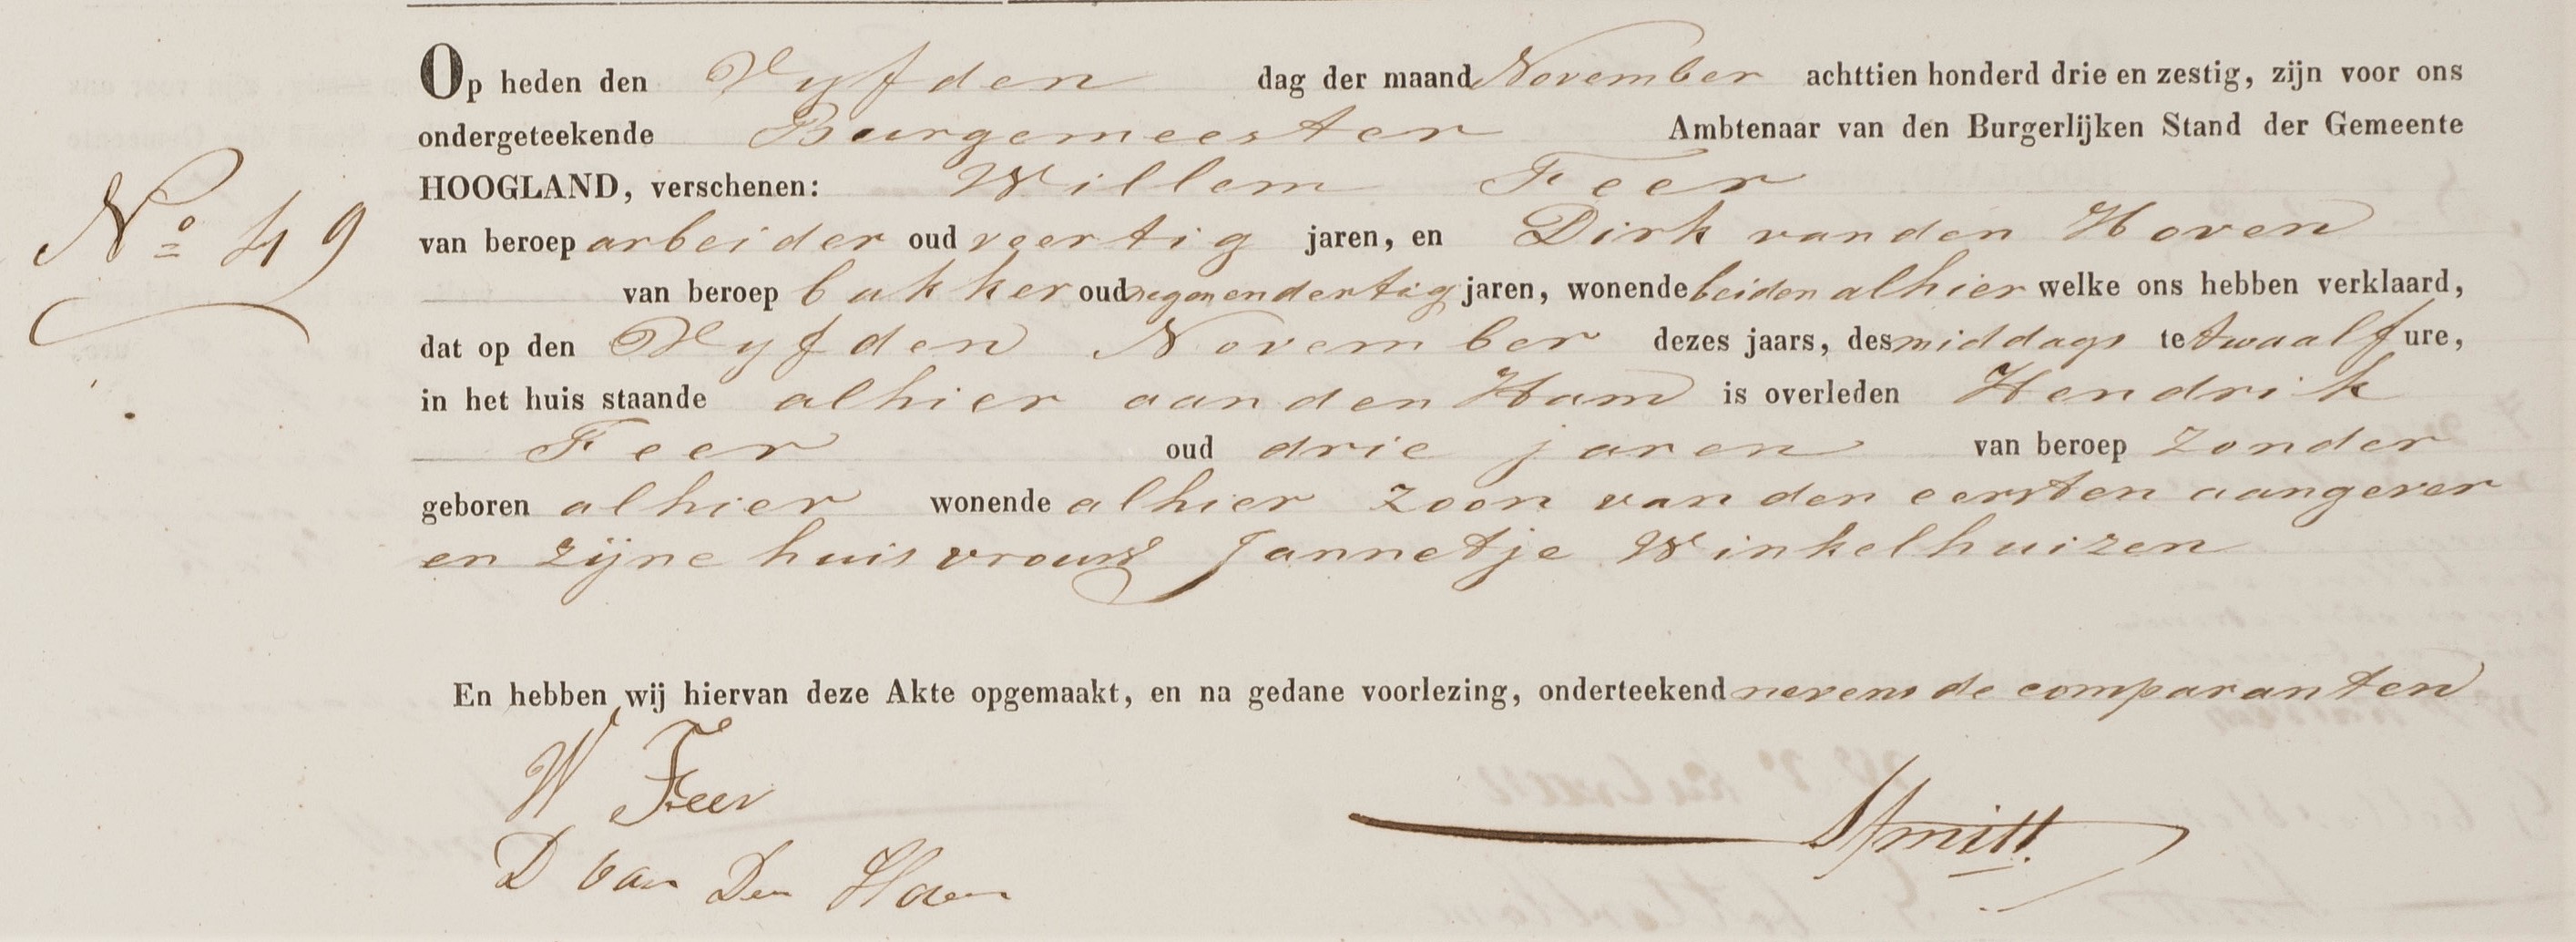 Op heden den Vyfden dag der maand November achttien honderd drie en zestig, zijn voor ons
ondergeteekende Burgemeester Ambtenaar van den Burgerlijken Stand der Gemeente
HOOGLAND, verschenen: Willem Feer
No 49
van beroep arbeider oud veertig jaren, en Dirk van den Hoven
van beroep bakker oud negenendertig jaren, wonende beiden alhier welke ons hebben verklaard,
dat op den Vyfden November dezes jaars, des middags te twaalf ure,
in het huis staande alhier aan den Ham is overleden Hendrik
Feer oud drie jaren van beroep zonder
geboren alhier wonende alhier zoon van den eersten aangever
en zijne huisvrouw Jannetje Winkelhuizen
En hebben wij hiervan deze Akte opgemaakt, en na gedane voorlezing, onderteekend nevens de comparanten
W Feer
D van Den Hoven